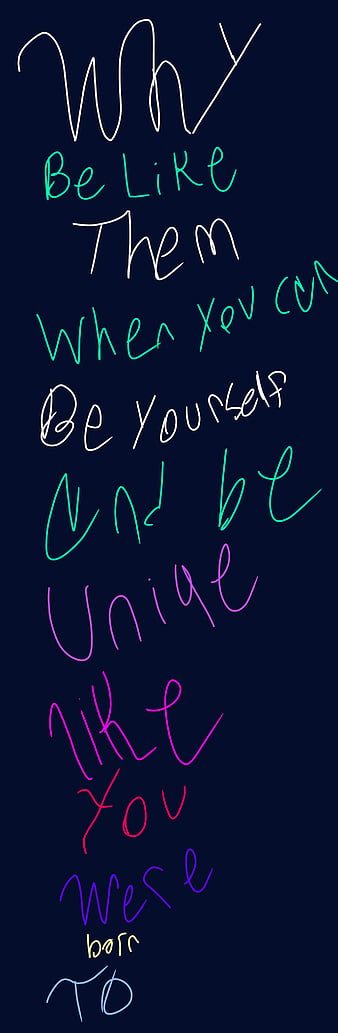 Why
Be Like
Them
When You can
Be Yourself
And be
Uniqe
like
You
Were
born
TO